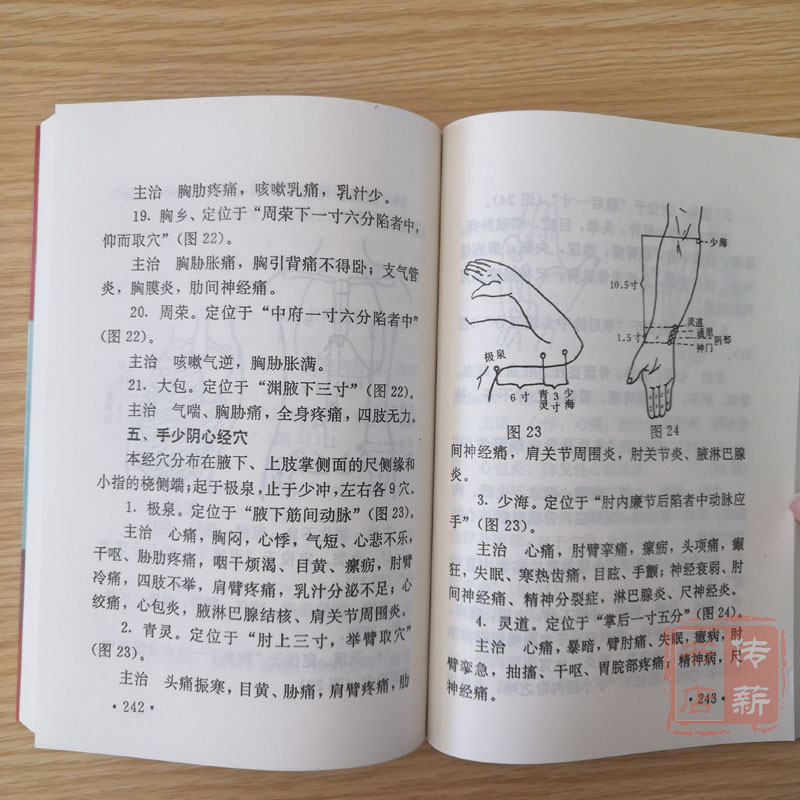 主治　胸肋疼痛，咳嗽乳痛，乳汁少。
19．胸乡、定位于“周荣下一寸六分陷者中，
仰而取穴”（图22）。
主治　胸胁胀痛，胸引背痛不得卧；支气管
炎，胸膜炎，肋间神经痛。
20．周荣。定位于“中府一寸六分陷者中”
（图22）。
主治　咳嗽气逆，胸胁胀满。
21．大包。定位于“渊腋下三寸”（图22）。
主治　气喘、胸胁痛，全身疼痛，四肢无力。
五、手少阴心经穴
本经穴分布在腋下、上肢掌侧面的尺侧缘和
小指的桡侧端；起于极泉，止于少冲，左右各9穴。
1．极泉。定位于“腋下筋间动脉”（图23）。
主治　心痛，胸闷，心悸，气短、心悲不乐，
干呕、胁肋疼痛，咽干烦渴、目黄、瘰疬，肘臂
冷痛，四肢不举，肩臂疼痛，乳汁分泌不足；心
绞痛，心包炎，腋淋巴腺结核、肩关节周围炎。
2．青灵。定位于“肘上三寸，举臂取穴”
（图23）。
主治　头痛振寒，目黄、胁痛，肩臂疼痛，肋
·242·
极泉
6寸
青灵
3寸
少海
图23
少海
10.5寸
灵道
1.5寸
通里
阴郄
神门
图24
间神经痛，肩关节周围炎，肘关节炎、腋淋巴腺
炎。
3．少海。定位于“肘内廉节后陷者中动脉应
手”（图23）。
主治　心痛，肘臂挛痛，瘰疬，头项痛，癫
狂，失眠、寒热齿痛，目眩、手颤；神经衰弱、肘
间神经痛、精神分裂症，淋巴腺炎、尺神经炎。
4．灵道。定位于“掌后一寸五分”（图24）。
主治　心痛，暴喑，臂肘痛、失眠，癔病，肘
臂挛急，抽搐、干呕、胃脘部疼痛；精神病，尺
神经痛。
·243·
传薪
店